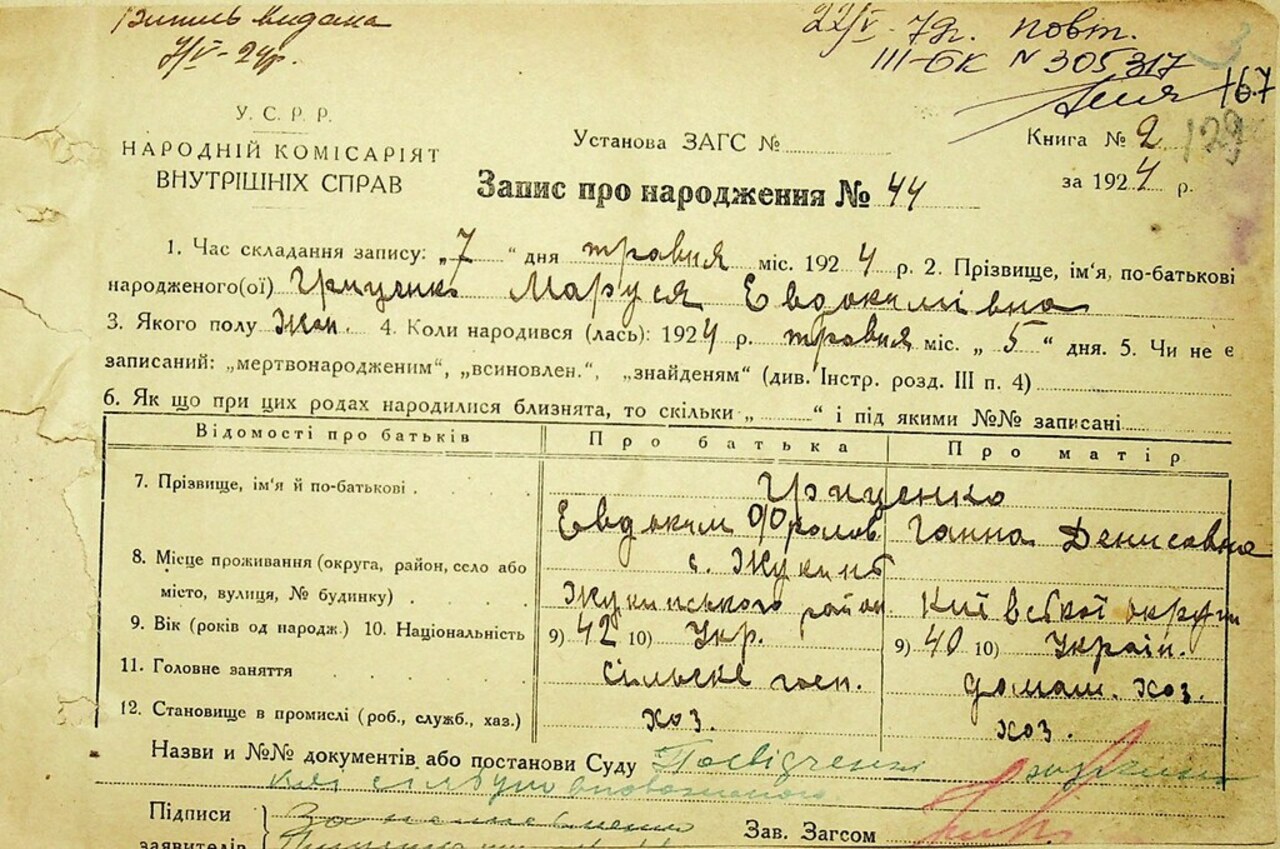 Витиль видана
7/V - 24р.
22/V - 79. повт.
III-БК № 305317
167
129
У. С. Р. Р.
НАРОДНІЙ КОМІСАРІЯТ
ВНУТРІШНІХ СПРАВ
Установа ЗАГС №
Книга № 2
за 1924 р.
Запис про народження № 44
1. Час складання запису: „7“ дня травня міс. 1924 р. 2. Прізвище, ім'я, по-батькові
народженого(ої) Гриценко Маруся Евдокимівна
3. Якого полу Жон. 4. Коли народився (лась): 1924 р. травня міс. „5“ дня. 5. Чи не є
записаний: „мертвонародженим“, „всиновлен.“, „знайденям“ (див. Інстр. розд. III п. 4)
6. Як що при цих родах народилися близнята, то скільки „ “ і під якими №№ записані
Відомості про батьків Про батька Про матір
7. Прізвище, ім'я й по-батькові Гриценко
Евдоким Фролов Ганна Денисовна
8. Місце проживання (округа, район, село або с. Жукинь
місто, вулиця, № будинку) Жукинського район Київської округи
9. Вік (років од народж.) 10. Національність 9) 42 10) Укр. 9) 40 10) Україн.
11. Головне заняття сільське госп. домаш. хоз.
12. Становище в промислі (роб., служб., хаз.) хоз. хоз.
Назви и №№ документів або постанови Суду Посвідчення
Підписи
заявителів
Зав. Загсом